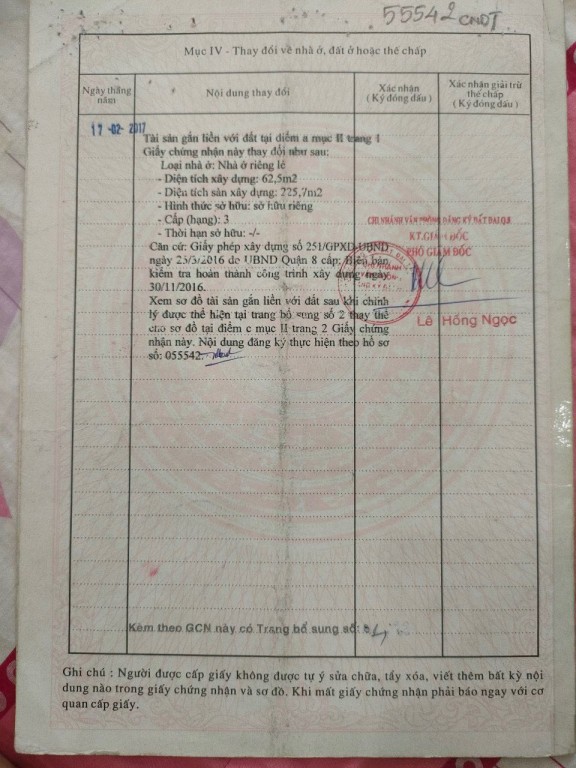 55542 CNDT
Mục IV - Thay đổi về nhà ở, đất ở hoặc thế chấp
Ngày tháng năm
Nội dung thay đổi
Xác nhận
( Ký đóng dấu )
Xác nhận giải trừ thế chấp
( Ký đóng dấu)
17-02-2017
Tài sản gắn liền với đất tại điểm a mục II trang 1
Giấy chứng nhận này thay đổi như sau:
Loại nhà ở: Nhà ở riêng lẻ
- Diện tích xây dựng: 62,5m2
- Diện tích sàn xây dựng: 225,7m2
- Hình thức sở hữu: sở hữu riêng
- Cấp (hạng): 3
- Thời hạn sở hữu: -/-
Căn cứ: Giấy phép xây dựng số 251/GPXD-UBND
ngày 25/3/2016 do UBND Quận 8 cấp; Biên bản
kiểm tra hoàn thành công trình xây dựng ngày
30/11/2016.
Xem sơ đồ tài sản gắn liền với đất sau khi chỉnh
lý được thể hiện tại trang bổ sung số 2 thay thế
cho sơ đồ tại điểm c mục II trang 2 Giấy chứng
nhận này. Nội dung đăng ký thực hiện theo hồ sơ
số: 055542.
CHI NHÁNH VĂN PHÒNG ĐĂNG KÝ ĐẤT ĐAI Q.8
KT.GIÁM ĐỐC
PHÓ GIÁM ĐỐC
Lê Hồng Ngọc
Kèm theo GCN này có Trang bổ sung số:
Ghi chú : Người được cấp giấy không được tự ý sửa chữa, tẩy xóa, viết thêm bất kỳ nội
dung nào trong giấy chứng nhận và sơ đồ. Khi mất giấy chứng nhận phải báo ngay với cơ
quan cấp giấy.